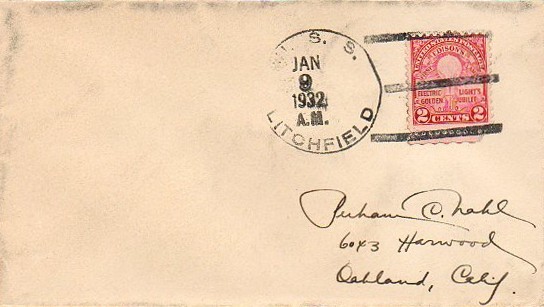 U. S. S.
JAN
9
1932
A.M.
LITCHFIELD
UNITED STATES POSTAGE
EDISON'S
ELECTRIC LIGHT'S
GOLDEN JUBILEE
2 CENTS 2
C. Nahl
Harwood
Oakland, Calif.